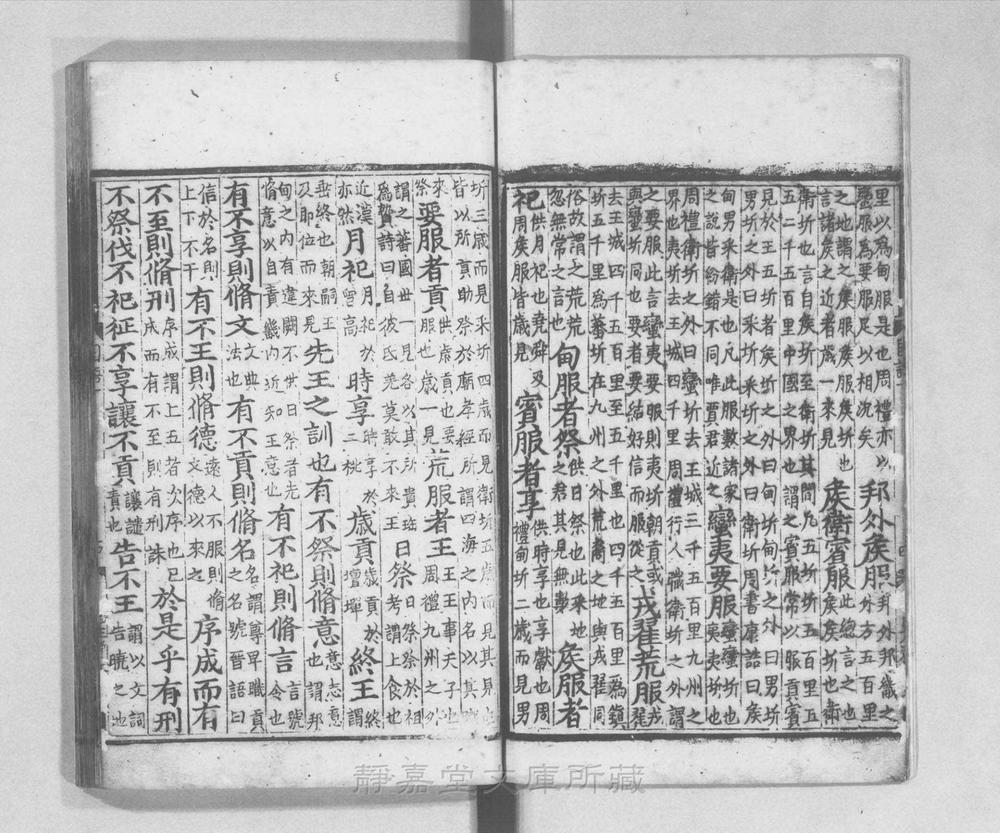 里以爲甸服是也周禮亦以蠻服爲要服足以相況矣邦外侯服邦外邦畿之外方五百里
之地謂之侯服侯服侯圻也言諸侯之近者歲一來見侯衛賓服此總言之也侯侯圻也衛
衛圻也言自侯圻至衛圻其間凡五圻圻五百里五五二千五百里中國之界也謂之賓服常以服貢賓
見於王五圻者侯圻之外曰甸圻甸圻之外曰男圻男圻之外曰采圻采圻之外曰衛圻周書康誥曰侯
甸男采衛是也凡此服數諸家之說皆紛錯不同唯賈君近之蠻夷要服蠻蠻圻也夷夷圻也
周禮衛圻之外曰蠻圻去王城三千五百里九州之界也夷圻去王城四千里周禮行人職衛圻之外謂
之要服此言蠻夷要服則夷圻朝貢或與蠻圻同也要者要結好信而服從之戎翟荒服戎翟
去王城四千五百里至五千里也四千五百里爲鎮圻五千里爲蕃圻在九州之外荒裔之地與戎翟同
俗故謂之荒荒忽無常之言也甸服者祭供日祭也此采地之君其見無數侯服者
祀供月祀也堯舜及周侯服皆歲見賓服者享供時享也享獻也周禮甸圻二歲而見男
圻三歲而見采圻四歲而見衛圻五歲而見其見也皆以所貢助祭於廟孝經所謂四海之內各以其職
來祭要服者貢供歲貢也要服也歲一見荒服者王王王事天子也周禮九州之外
謂之蕃國世一見各以其所貴珤爲贄詩曰自彼氐羌莫敢不來王日祭日祭祭於祖考謂上食也
近漢亦然月祀月祀於曾高時享時享於二祧歲貢歲貢於壇墠終王終謂
垂終也朝嗣王及即位而來見先王之訓也有不祭則脩意意志意也謂邦
甸之內有違闕不供日祭者先脩意以自責畿內近知王意也有不祀則脩言言號令也
有不享則脩文文典法也有不貢則脩名名謂尊卑職貢之名號晉語曰
信於名則上下不干有不王則脩德遠人不服則脩文德以來之序成而有
不至則脩刑序成謂上五者次序也已成而有不至則有刑誅於是乎有刑
不祭伐不祀征不享讓不貢讓譴責也告不王謂以文詞告曉之也
靜嘉堂文庫所藏